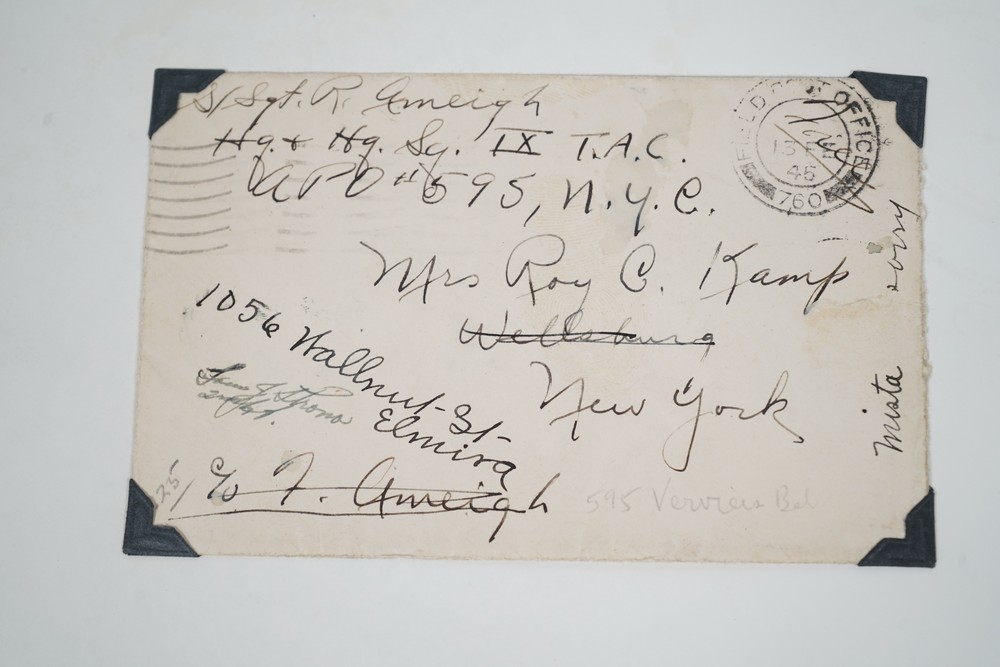 S/Sgt. R. Ameigh
Hq. & Hq. Sq. IX T.A.C.
APO #595, N.Y.C.
FIELD POST OFFICE
13 FE
45
760
Mrs Roy C. Kamp
Wellsburg
New York
1056 Wallnut St-
Elmira
c/o F. Ameigh
25
595 Verviers Bel
Mista sorry